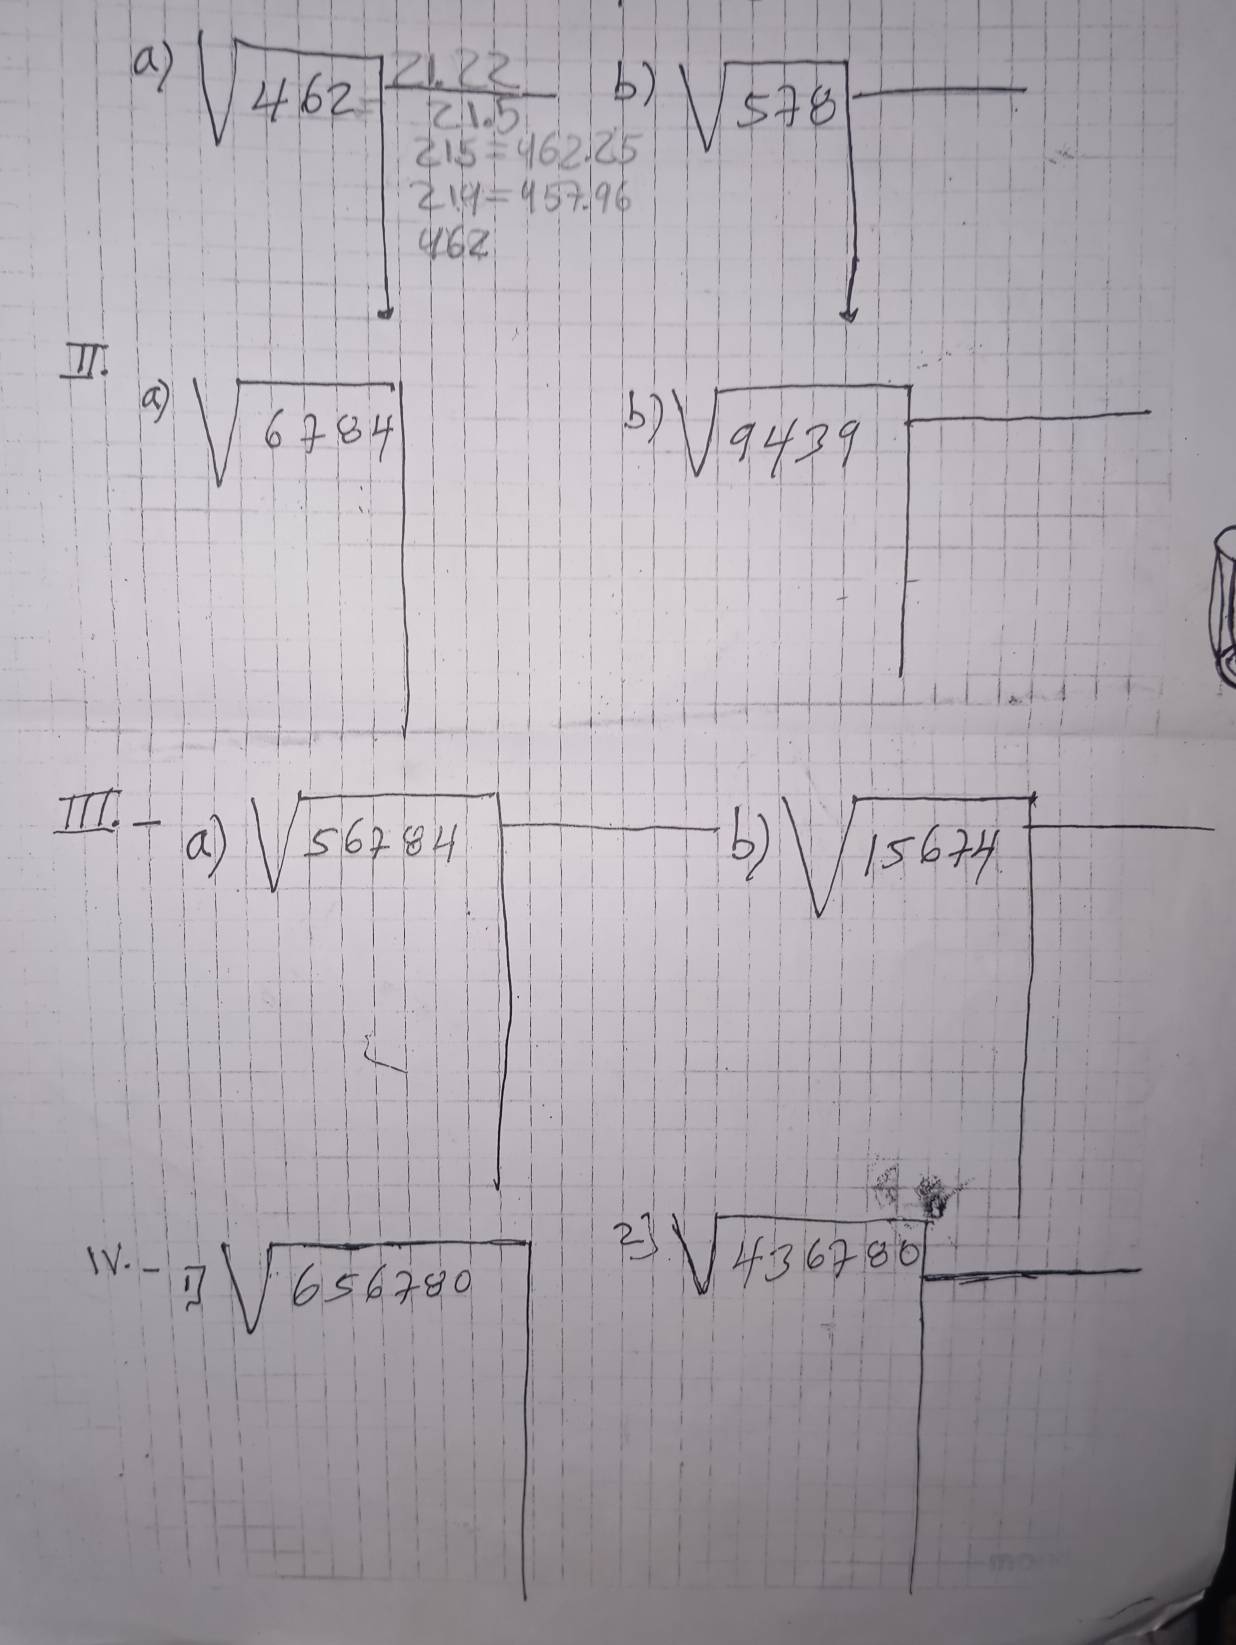 a) √462= 21.22
21.5
215=462.25
214=457.96
462
b) √578
II.
a) √6784
b) √9439
III.- a) √56784
b) √15674
IV.- 1] √656780
2] √436780